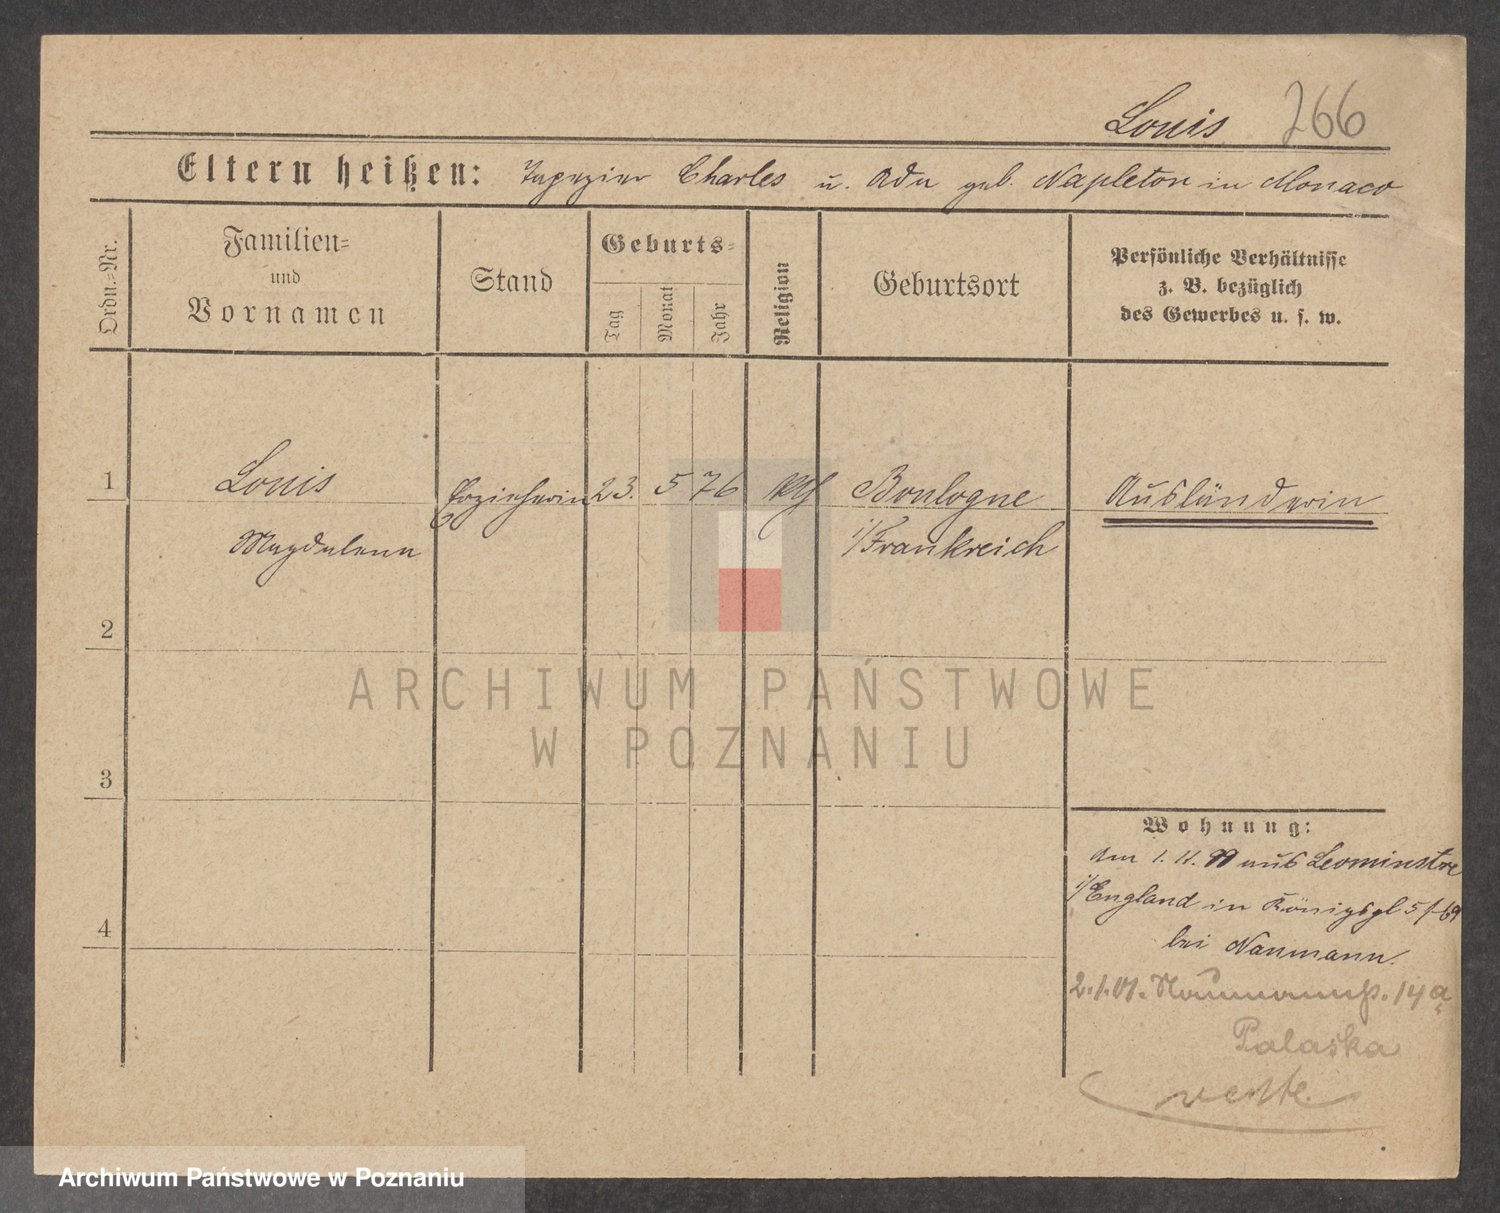 Louis 266
Eltern heißen: Tapezier Charles u. Ada geb. Napleton in Monaco
Ordn.=Nr.
Familien=
und
Vornamen
Stand
Geburts=
Tag
Monat
Jahr
Religion
Geburtsort
Persönliche Verhältnisse
z. B. bezüglich
des Gewerbes u. s. w.
1 Louis Erzieherin 23. 5 76 Boulogne Ausländerin
Magdalena i/Frankreich
2
3
4
Wohnung:
Am 1. 11. 99 aus Leominstre
i/England in Königspl 5
bei Naumann.
2.1.01. 14a
Palaska
ARCHIWUM PAŃSTWOWE
W POZNANIU
Archiwum Państwowe w Poznaniu